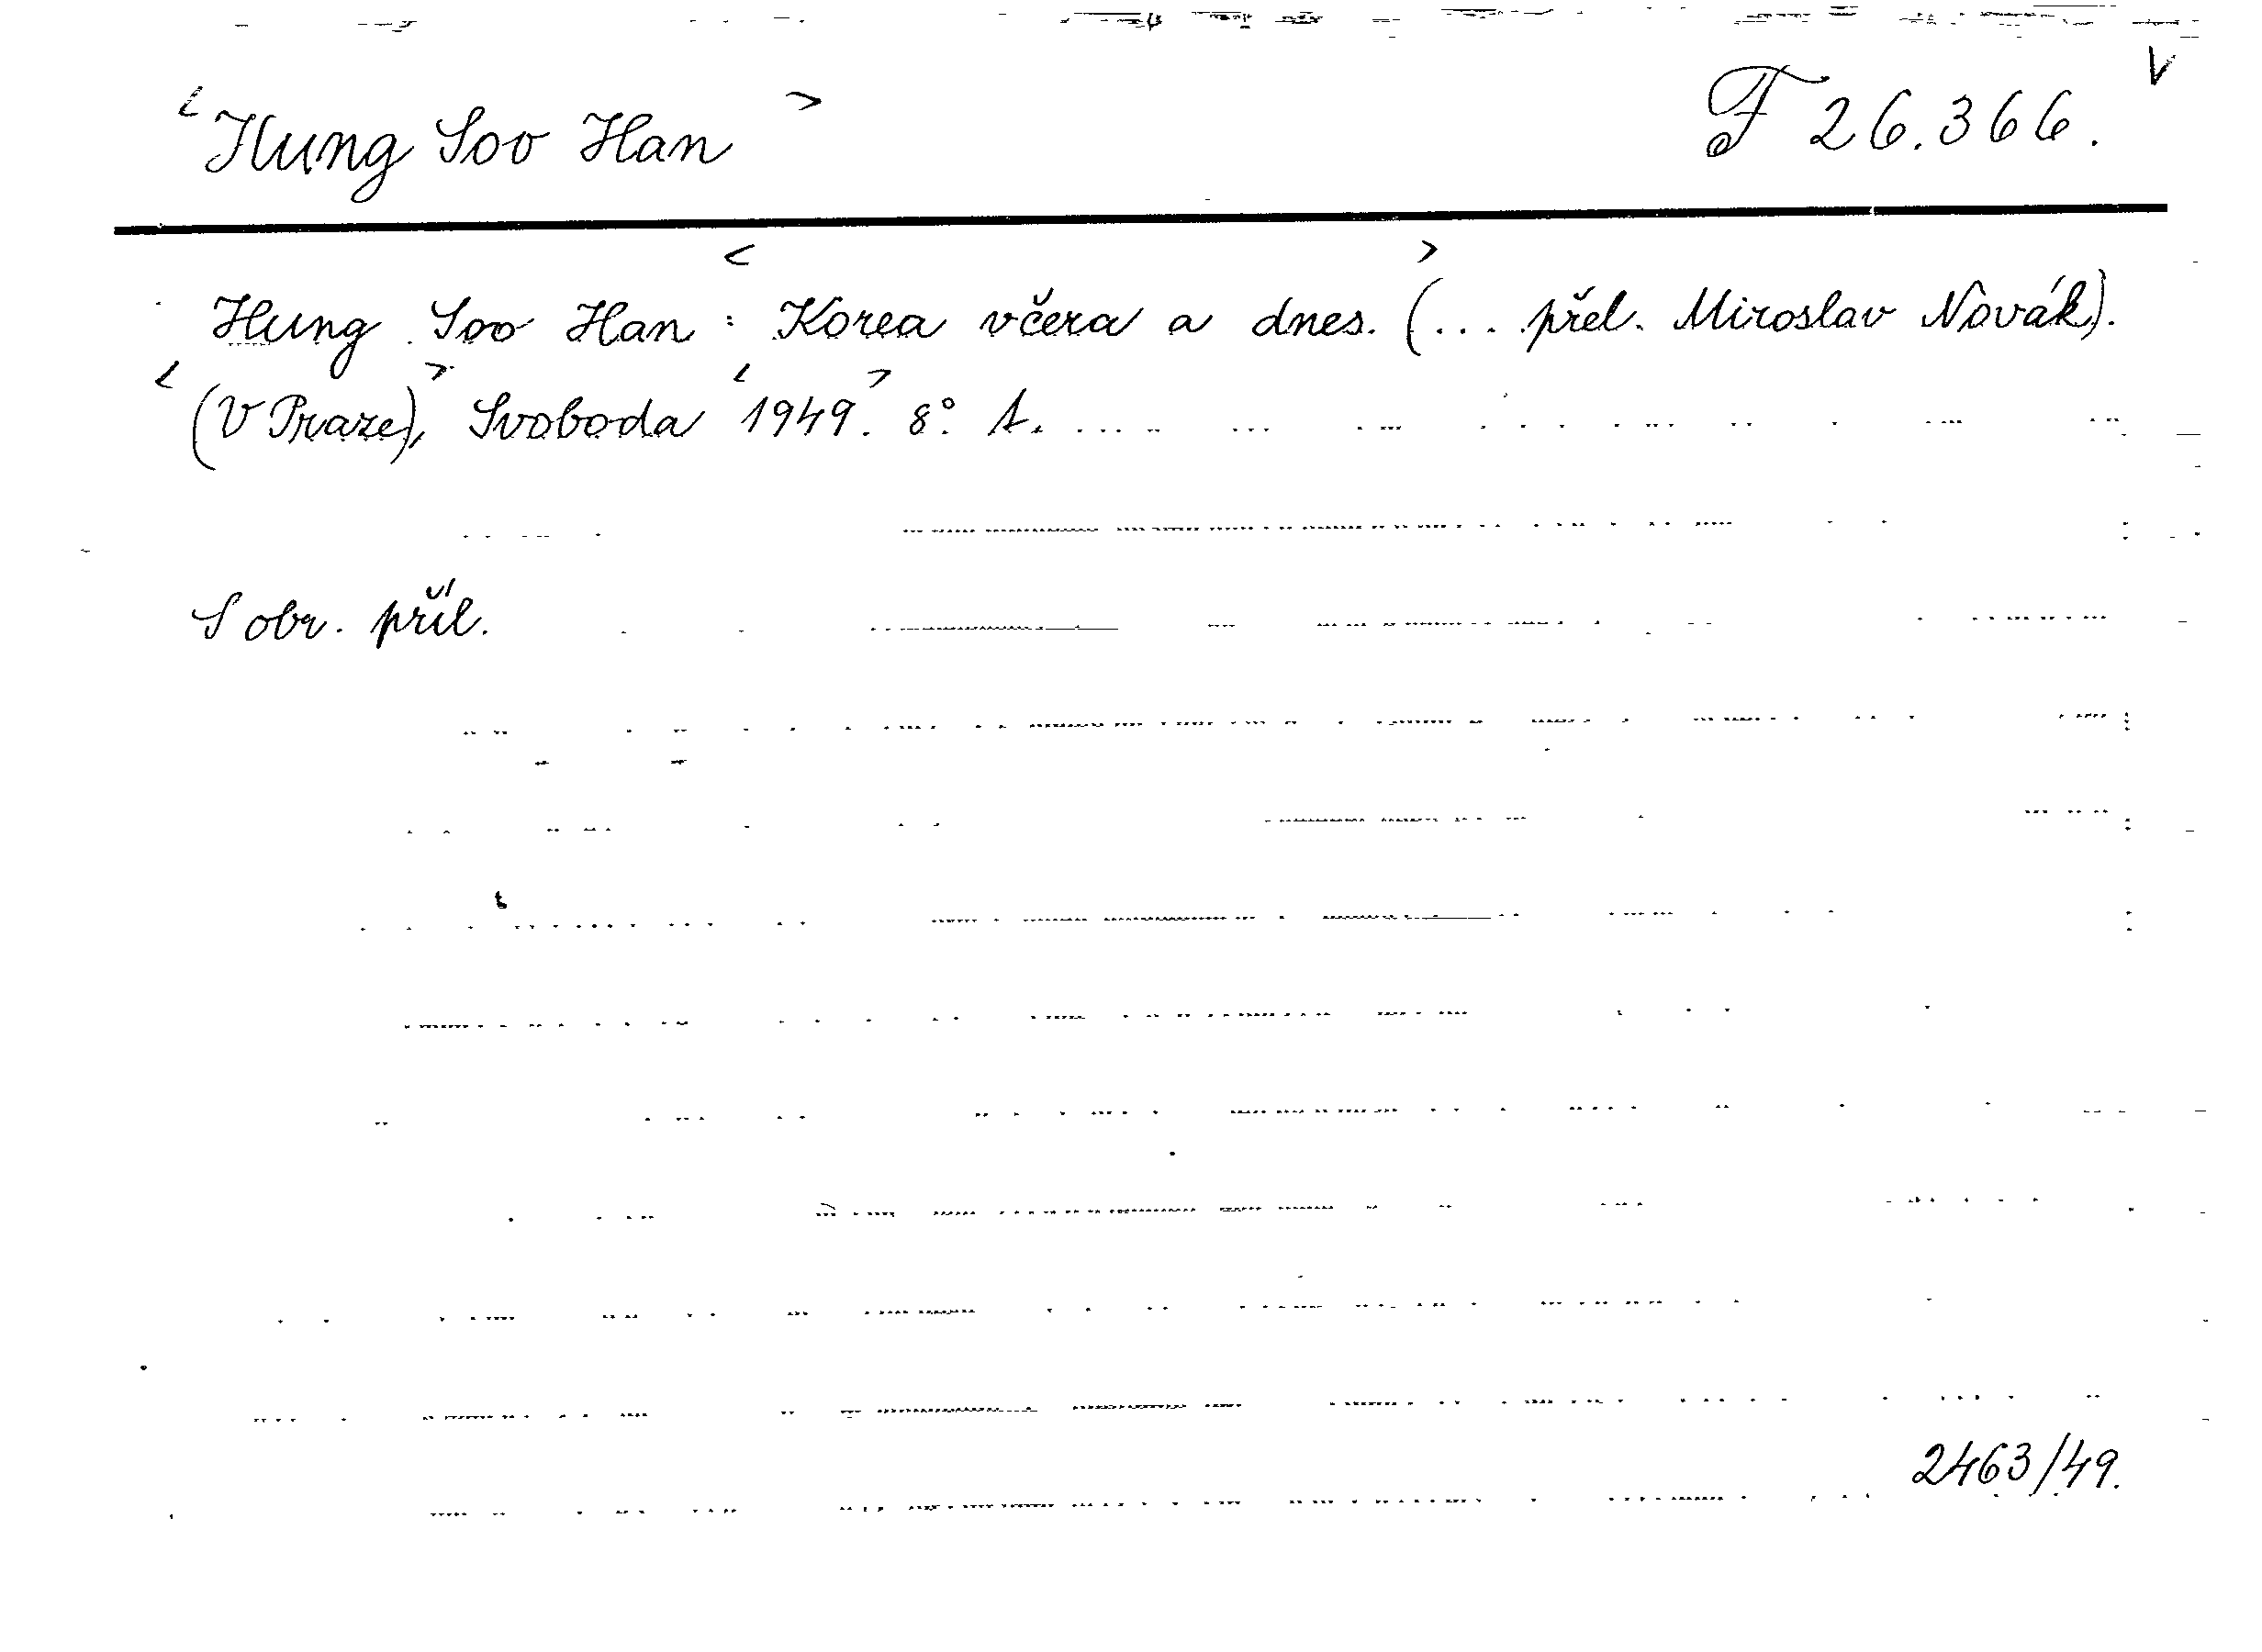 <Hung Soo Han> F 26.366. V
Hung Soo Han: <Korea včera a dnes.> (... přel. Miroslav Novák).
<(V Praze),> Svoboda <1949.> 8°. 1.
S obr. příl.
2463/49.